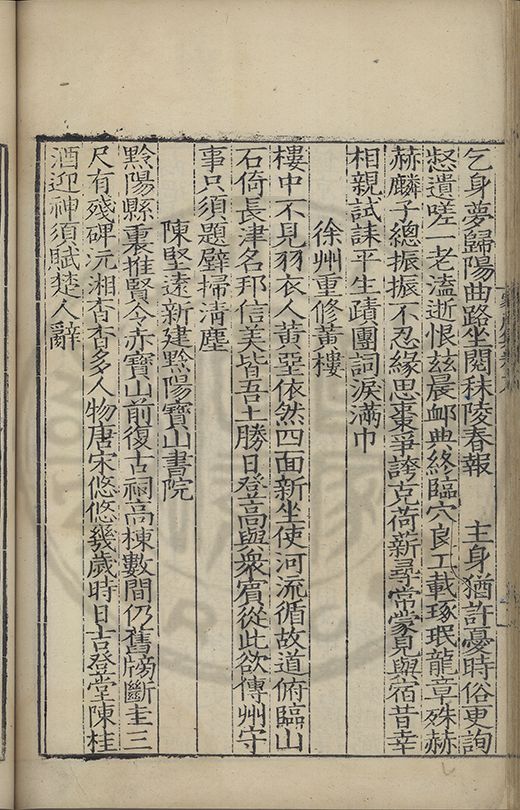 乞身夢歸陽曲路坐閱秣陵春報　主身猶許憂時俗更詢
憖遺嗟一老溘逝恨玆晨卹典終臨穴良工載琢珉龍章殊赫
赫麟子總振振不忍緣思棗爭誇克荷薪尋常蒙見與宿昔幸
相親試誄平生蹟團詞淚滿巾
徐州重修黃樓
樓中不見羽衣人黃堊依然四面新坐使河流循故道俯臨山
石倚長津名邦信美皆吾土勝日登高與衆賓從此欲傳州守
事只須題壁掃淸塵
陳堅遠新建黔陽寶山書院
黔陽縣裏推賢令赤寶山前復古祠高棟數間仍舊牓斷圭三
尺有殘碑沅湘杳杳多人物唐宋悠悠幾歲時日吉登堂陳桂
酒迎神須賦楚人辭